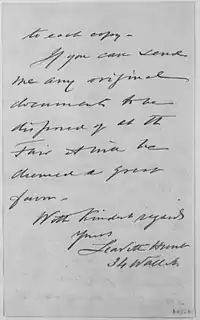 to each copy—
If you can send
me any original
documents to be
disposed of at the
Fair it will be
deemed a great
favor—
With kindest regards
Yours
Leavitt Hunt
34 Wall St